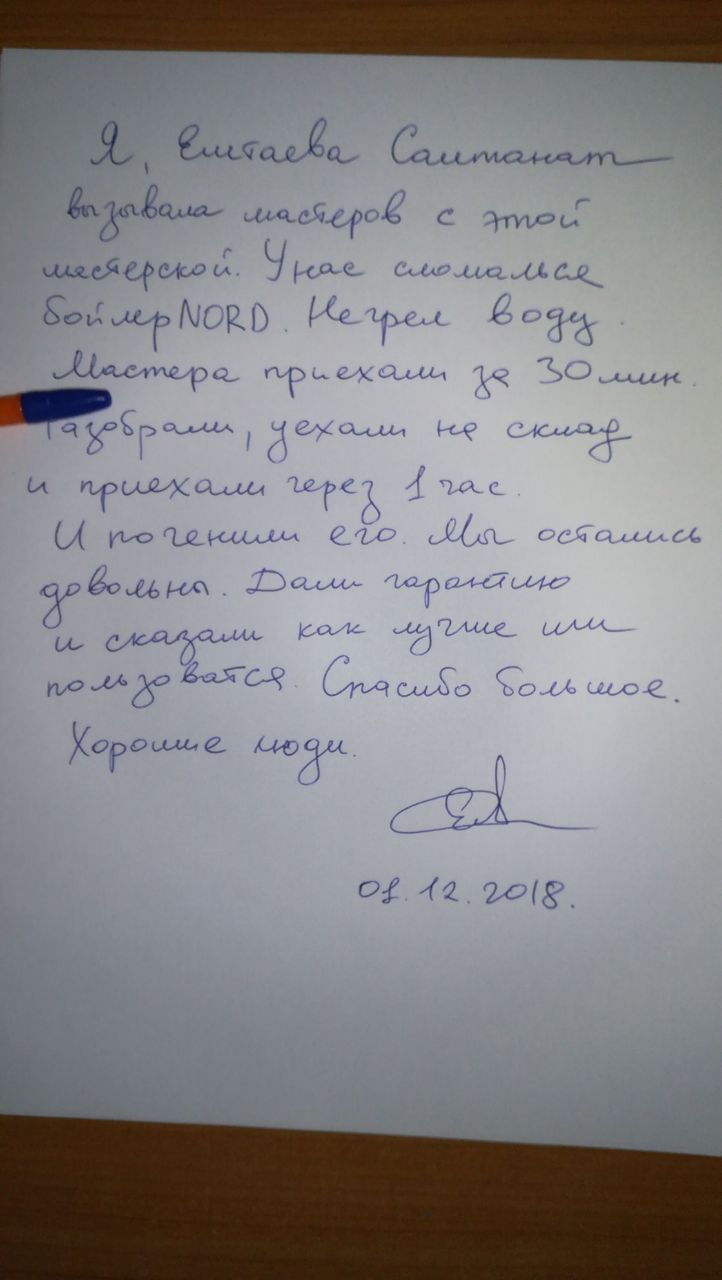 Я, Елтаева Салтанат
вызывала мастеров с этой
мастерской. У нас сломалься
бойлер NORD. Не грел воду.
Мастера приехали за 30 мин.
Разобрали, уехали на склад
и приехали через 1 час.
И починили его. Мы остались
довольны. Дали гарантию
и сказали как лучше им
пользоватся. Спасибо большое.
Хорошие люди.
01.12.2018.